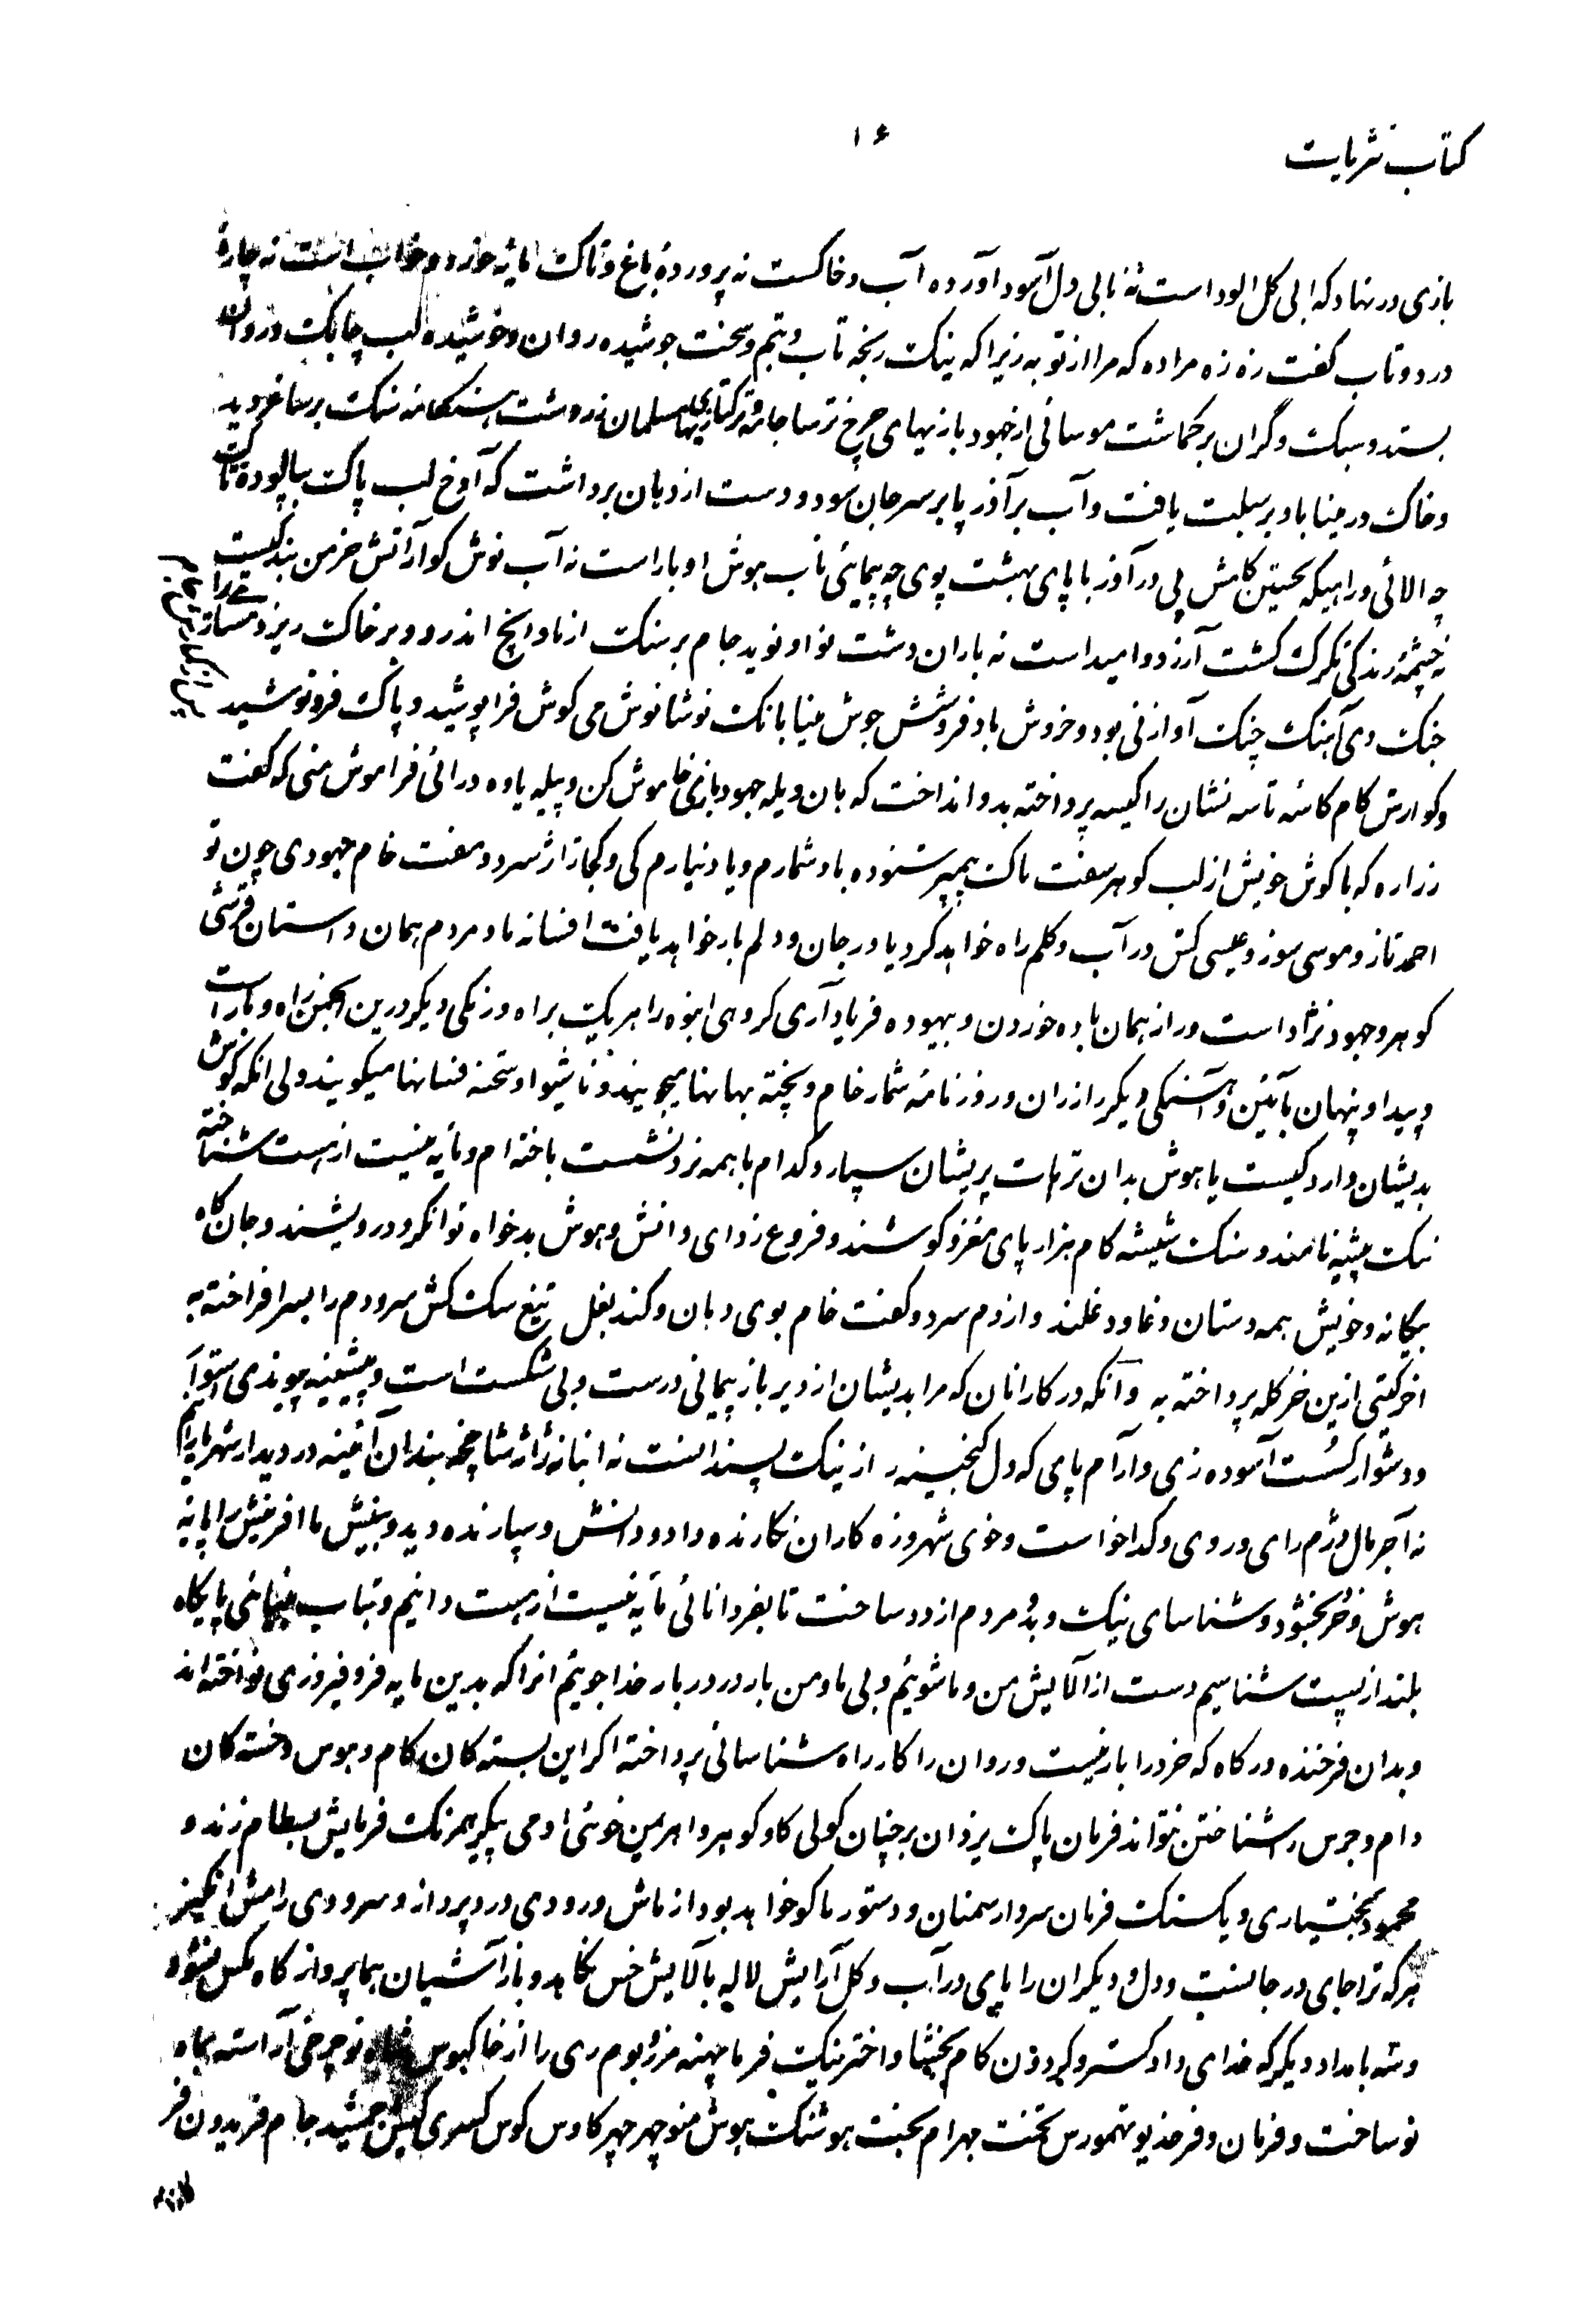 کتاب نثریات
۱۶
بازی در نهاد که ابی کل الود است نه نابی دل آسود آورده آب و خاکست نه پرورده باغ و تاک مایه خورد و خواب است نه چارهٔ
درد و تاب کفت زه زه مراده که مرا از تو به زیرا که نیک رنجه تاب و تبم و سخت جوشیده روان و خوشیده لب چابک در وان
بستد و سبک و گران بر کماشت موسائی از جهود بازیهای چرخ ترسا جامه و ترکتازیهای مسلمان زردشت هنگامه سنگ بر ساغر دید
و خاک در مینا باد بر سبلت یافت و آب بر آذر پا بر سر جان سود و دست از دهان برداشت که آوخ لب پاک بپالوده تاک
چه الائی و راهیکه نخستین کامش پی در آذر با پای بهشت پوی چه پیمائی ناب هوش اوبار است نه آب نوش کوار آتش خرمن بندکیست
نه چشمه زندکی تکرک کشت آرزو و امید است نه باران دشت نواو نوید جام بر سنک از ناوایخ اندرو و بر خاک ریز
جنک دی آهنک چنک آواز نی بود و خروش باد فروشش جوش مینا بانک نوشانوش می کوش فرا پوشید و پاک فرو نوشید
و کوارش کام کاسه تاسه نشان را کیسه پرداخته بدو انداخت که هان ویله جهود بازی خاموش کن و پیله یاوه درائی فراموش منی که کفت
زراره که با کوش خویش از لب کوهر سفت پاک پیمبر شنوده باد شمارم و یاد نیارم کی و کجا ژاژ سرد و مفت خام جهودی چون تو
احمد تاز و موسی سوز و عیسی کش در آب و کلم راه خواهد کرد یا در جان و دلم بار خواهد یافت افسانه ما و مردم همان داستان قرشی
کوهر و جهود نژاد است و راز همان باده خوردن و بیهوده فریاد آری کروهی انبوه را هر یک براه و رنکی دیکر درین انجمن راه و تار است
و پیدا و پنهان بآئین و آهنکی دیکر رازران و روزنامه شمار خام و پخته بهانها میجویند و ناشیوا و سخته فسانها میکویند ولی انکه کوش
بدیشان دارد کیست یا هوش بدان ترهات پریشان سپارد کدام با همه نرد نشست باخته ام و مایه نیست از هست شناخته
نیک پیشه نامند و سنک شیشه کام هزار پای مغز و کوشند و فروغ زدای دانش و هوش بدخواه توانکر و درویشند و جان کاه
بیکانه و خویش همه دستان و دغا و دغلند و از دم سرد و کفت خام بوی دهان و کند بغل تیغ سک کش سرو دم را بسر افراخته به
اخر کیتی ازین خر کله پرداخته به و آنکه در کار انان که مرا بدیشان از دیر باز پیمانی درست و بی شکست است و پیشینه پیوندی استوار
و دشوار کسست آسوده زی و آرام پای که دل کنجینه راز نیک پسند است نه انبانه ژاژ شاخچه بندان آئینه در دیدار شهریارم
نه آجر مال دژم رای و روی و کدا خواست و خوی شهروزه کاران نکارنده داد و دانش و سپارنده دید و بینش ما افرینش را پایه
هوش و خرد بخشود و شناسای نیک و بد مردم از دد ساخت تا بفر دانائی مایه نیست از هست دانیم و بتاب بینائی پایکاه
بلند از پست شناسیم دست از آلایش من و ما شوئیم و بی ما و من بار در دربار خدا جوئیم انرا که بدین مایه فر و فیروزی نواخته اند
و بدان فرخنده درکاه که خرد را بار نیست و روان را کار راه شناسائی پرداخته اکر این بسته کان کام و هوس و خسته کان
دام و جرس شناختن نتواند فرمان پاک یزدان بر چنان کولی کاو کوهر و اهریمن خوئی ادمی پیکر همرنک فرمایش بسطام زند و
محمود بختیاری و یکسنک فرمان سردار سمنان و دستور ماکو خواهد بود از ماش درودی درد پرداز و سرودی رامش انکیز
هر که ترا جای در جانست و دل و دیکران را پای در آب و کل آرایش لاله بآلایش خس نکاهد و باز آشیان هما پرواز کاه مکس نشود
و شه بامداد دیکر که خدای دادکستر و کردون کام بخشا و اختر نیک فرما پهنه مرز و بوم ری را از خاکبوس شاه نو چرخی آراسته بماه
نو ساخت و فرمان و فر خدیو تهمورس تخت بهرام بخت هوشنک هوش منوچهر چهر کاوس کوس کسری کیش جمشید جام فریدون فر